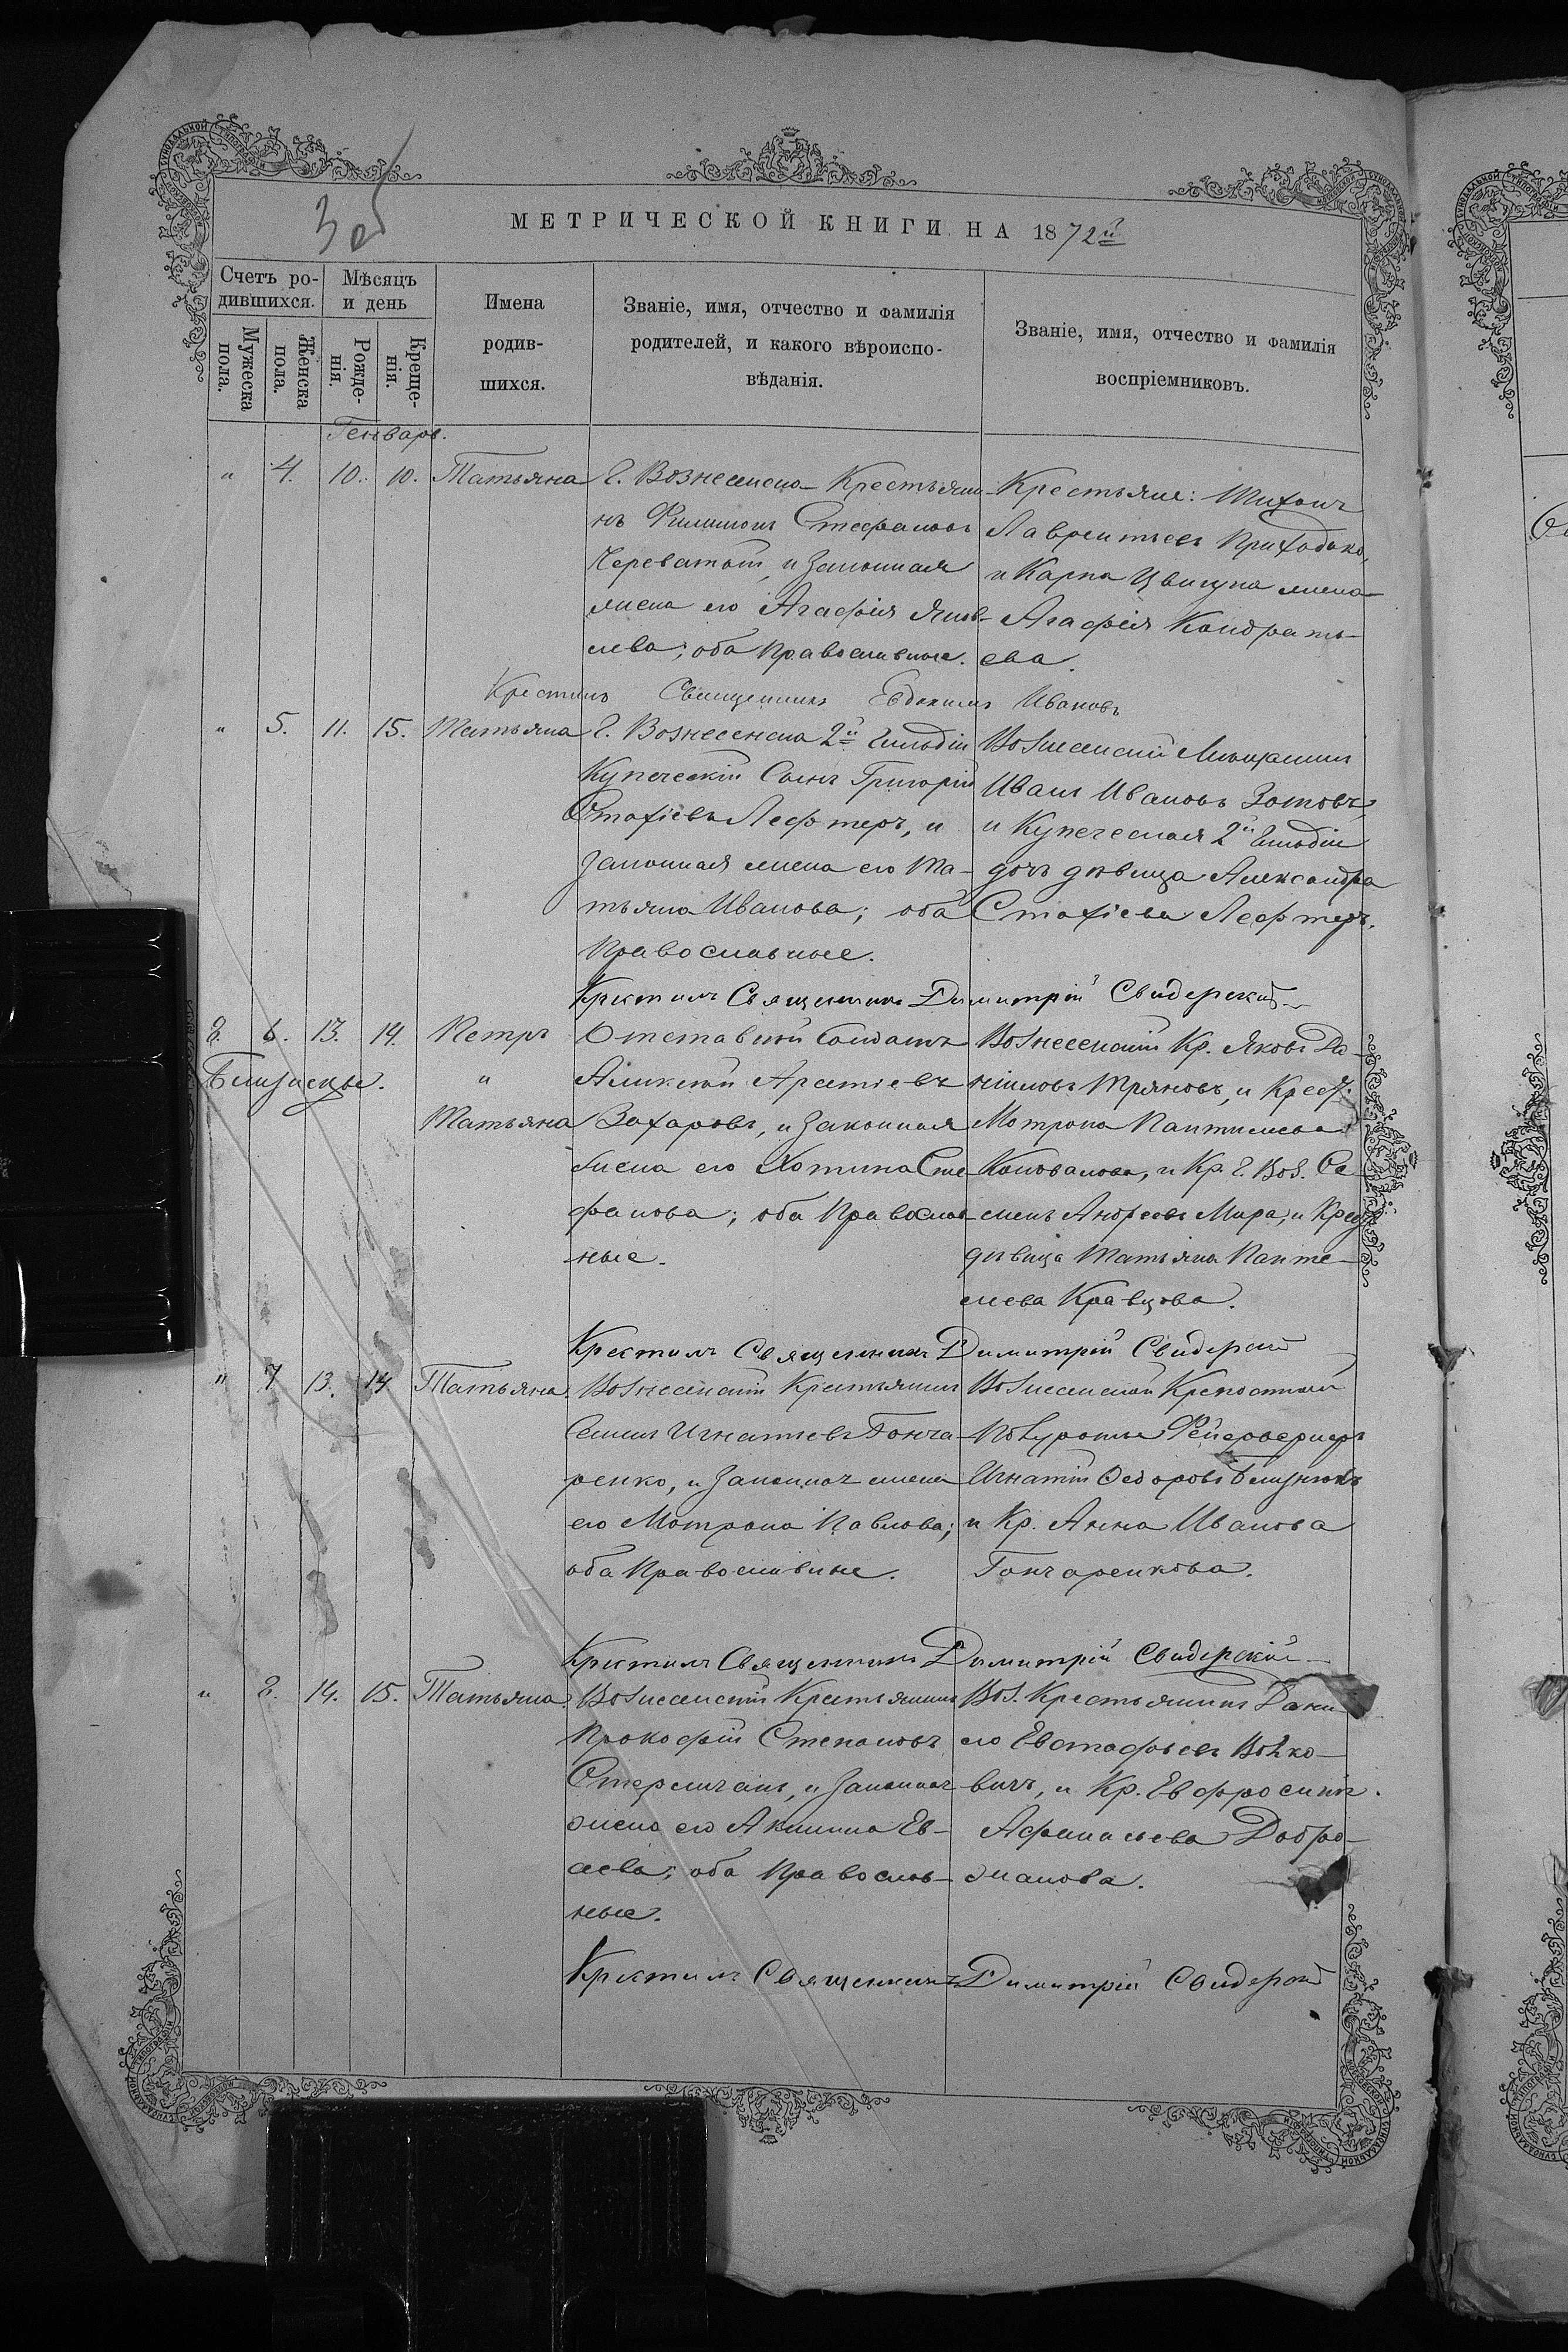 3 об
МЕТРИЧЕСКОЙ КНИГИ НА 1872й
Счетъ ро-
дившихся.
Мѣсяцъ
и день
Мужеска
пола.
Женска
пола.
Рожде-
нія.
Креще-
нія.
Имена
родив-
шихся.
Званіе, имя, отчество и фамилія
родителей, и какого вѣроиспо-
вѣданія.
Званіе, имя, отчество и фамилія
воспріемниковъ.
Генварь.
" 4. 10. 10. Татьяна
Г. Вознесенска Крестьяни-
нъ Филимонъ Стефановъ
Череватый, и законная
жена его Агафія Яков-
лева; оба Православные.
Крестьяне: Тихонъ
Лаврентьевъ Приходько,
и Карпа Цвигуна жена
Агафія Кондрать-
ева.
Крестилъ Священникъ Евдокимъ Ивановъ
" 5. 11. 15. Татьяна
Г. Вознесенска 2й Гильдіи
Купеческій Сынъ Григорій
Стахіевъ Лефтеръ, и
законная жена его Та-
тьяна Иванова; оба
Православные.
Вознесенскій Мещанинъ
Иванъ Ивановъ Зотовъ,
и Купеческая 2й Гильдіи
дочь дѣвица Александра
Стахіева Лефтеръ.
Крестилъ Священникъ Димитрій Свидерскій
2. 6. 13. 14. Петръ
Близнецы. "
Татьяна
Отставной Солдатъ
Арсеніевъ
Захаровъ, и законная
жена его Хотина Сте-
фанова; оба Православ-
ные.
Вознесенскій Кр. Яковъ Да-
ніиловъ Тряновъ, и Крест.
Мотрона Пантилеева
Коновалова, и Кр. Г. Воз. Се-
менъ Андреевъ Мира, и Крест.
дѣвица Татьяна Панте-
леева Кравцова.
Крестилъ Священникъ Димитрій Свидерскій
" 7 13. 14 Татьяна.
Вознесенскій Крестьянинъ
Семенъ Игнатьевъ Гонча-
ренко, и законная жена
его Мотрона Павлова;
оба Православные.
Вознесенской
Игнатій Федоровъ Близнюкъ
и Кр. Анна Иванова
Гончаренкова.
Крестилъ Священникъ Димитрій Свидерскій
" 8. 14. 15. Татьяна.
Вознесенскій Крестьянинъ
Прокофій Степановъ
и законная
жена его Акилина Ев-
сеева; оба Православ-
ные.
Воз. Крестьянинъ Дани-
ло Евстафьевъ Войко-
вичъ, и Кр. Евфросинія
Афанасьева Добро-
жанова.
Крестилъ Священникъ Димитрій Свидерскій